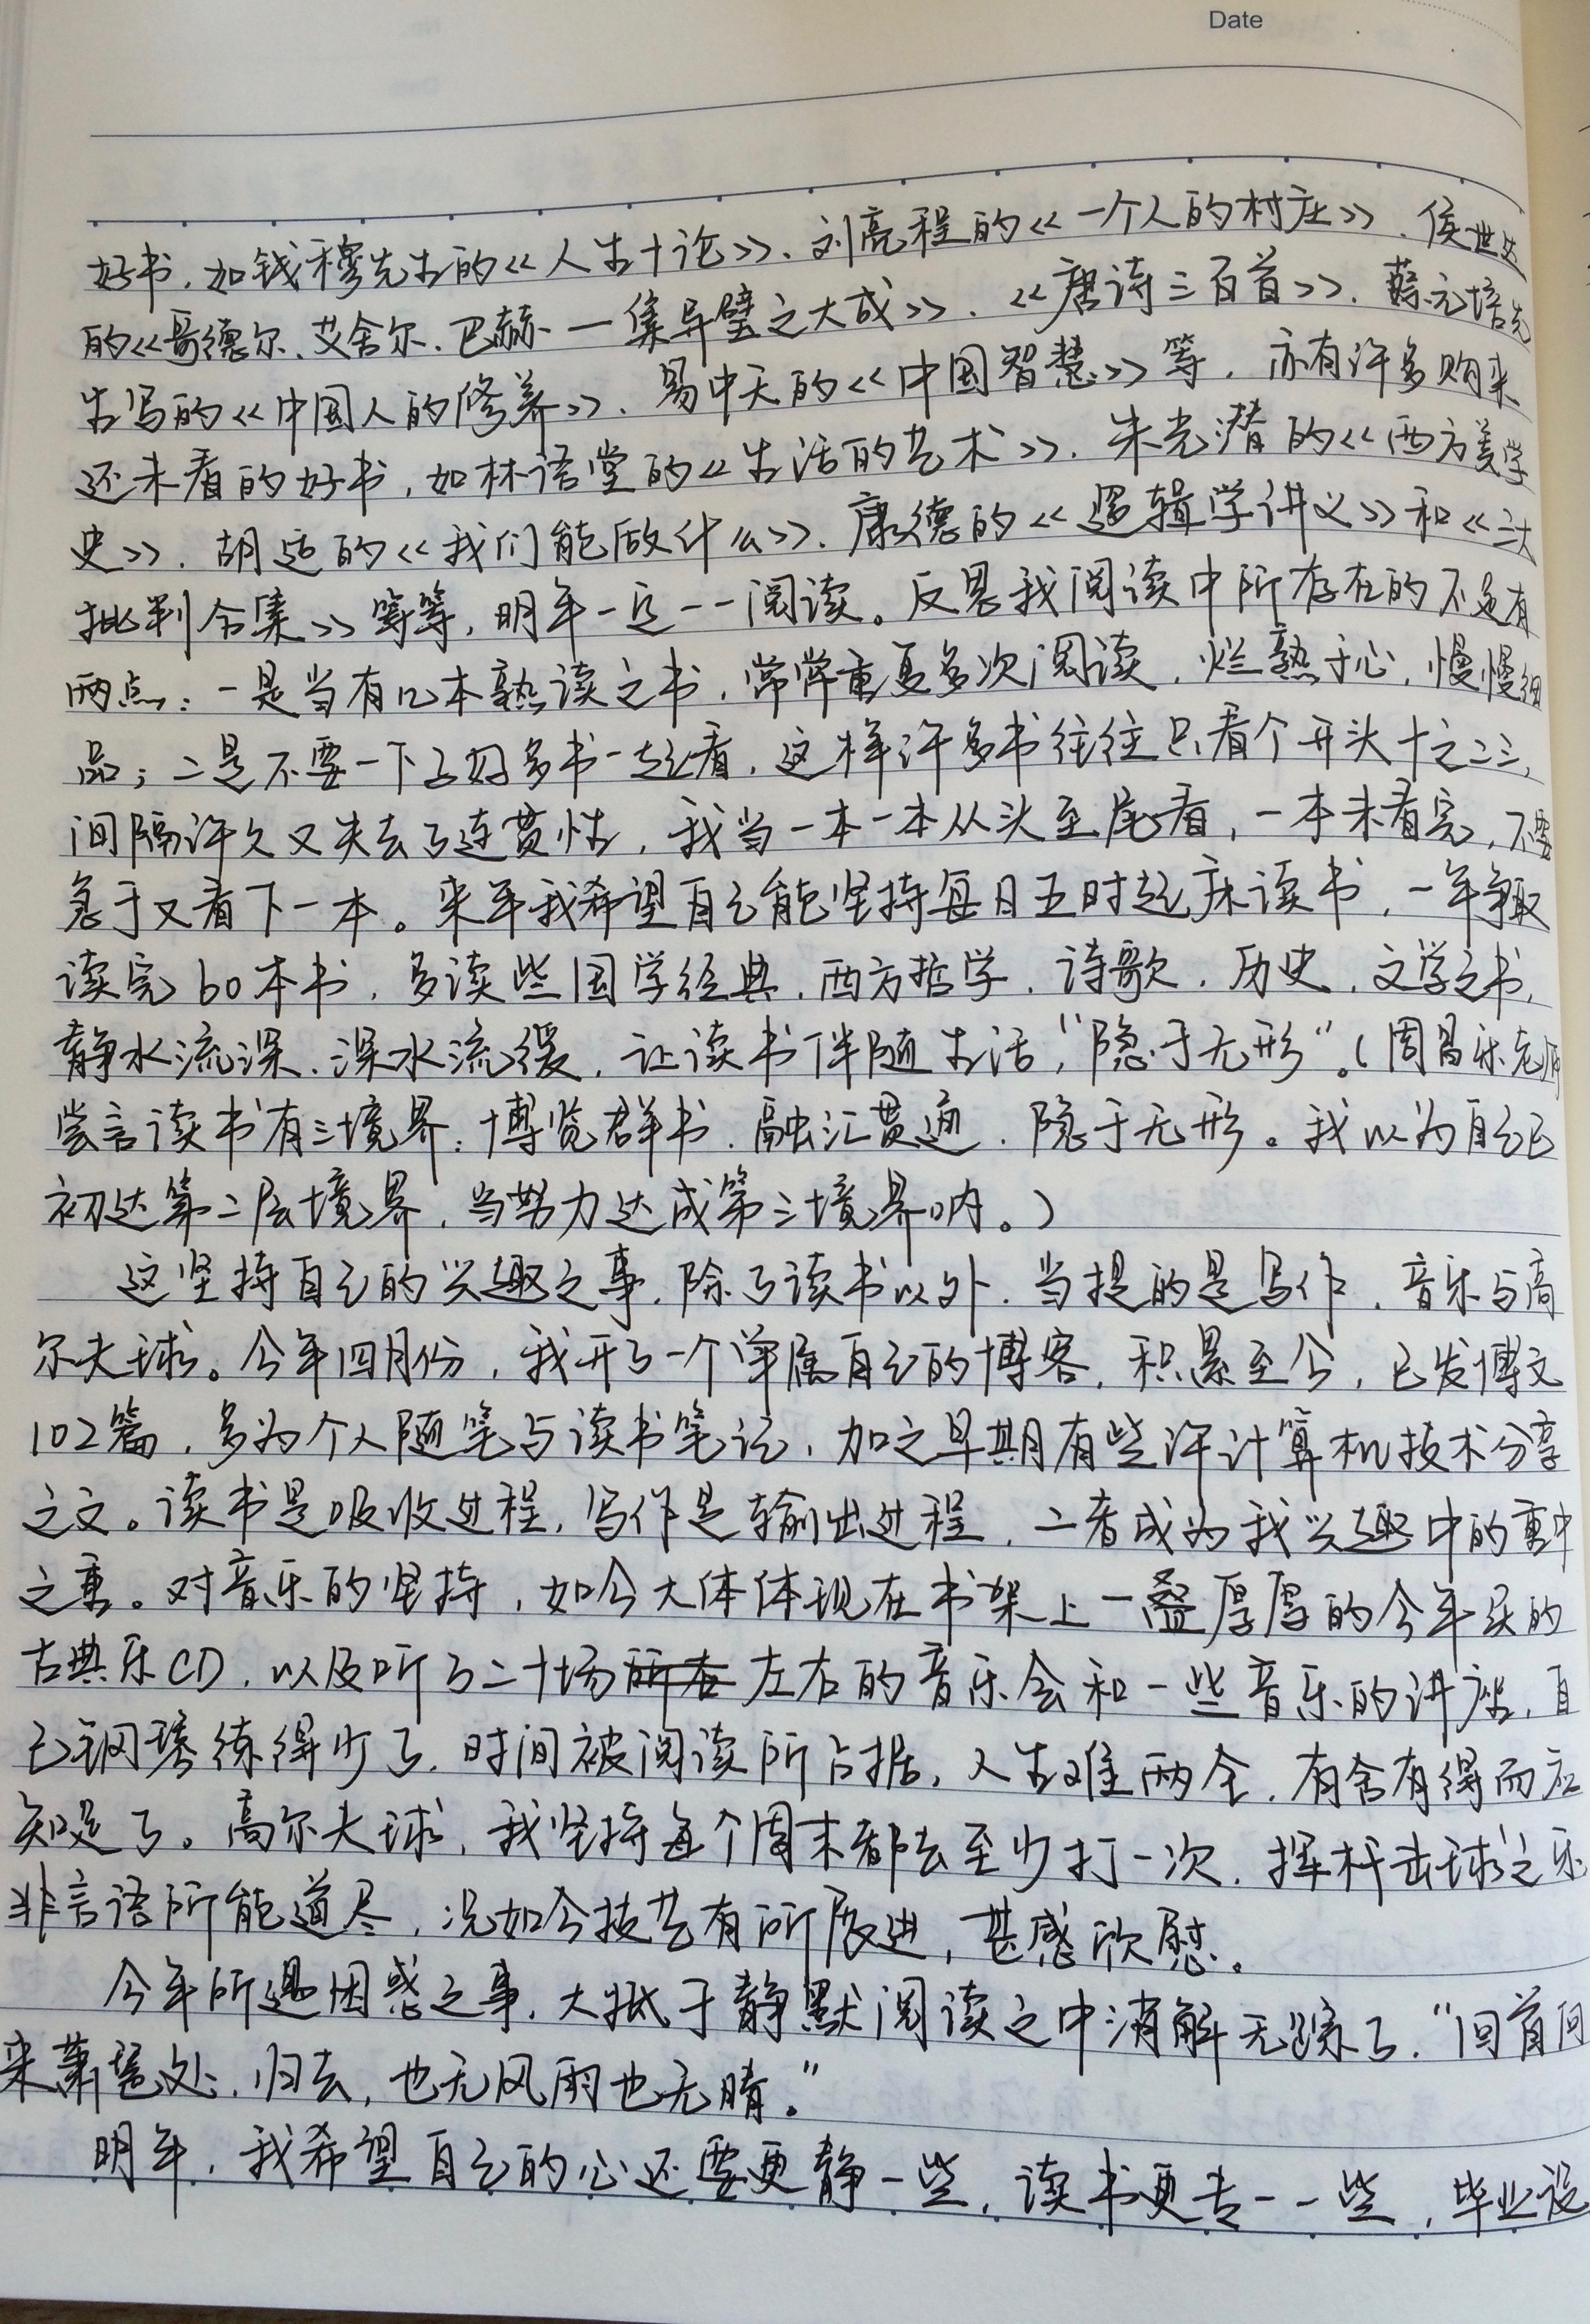 Date
好书，如钱穆先生的《人生十论》、刘亮程的《一个人的村庄》、侯世达
的《哥德尔、艾舍尔、巴赫—集异璧之大成》、《唐诗三百首》、蔡元培先
生写的《中国人的修养》、易中天的《中国智慧》等，亦有许多购来
还未看的好书，如林语堂的《生活的艺术》、朱光潜的《西方美学
史》、胡适的《我们能做什么》、康德的《逻辑学讲义》和《三大
批判合集》等等，明年一定一一阅读。反思我阅读中所存在的不足有
两点：一是当有几本熟读之书，常常重复多次阅读，烂熟于心，慢慢细
品；二是不要一下子好多书一起看，这样许多书往往只看个开头十之二三，
间隔许久又失去了连贯性，我当一本一本从头至尾看，一本未看完，不要
急于又看下一本。来年我希望自己能坚持每日五时起床读书，一年争取
读完60本书，多读些国学经典、西方哲学、诗歌、历史、文学之书，
静水流深、深水流缓，让读书伴随生活，“隐于无形”。（周昌乐先师
尝言读书有三境界：博览群书、融汇贯通、隐于无形。我以为自己已
初达第二层境界，当努力达成第三境界呐。）
这坚持自己的兴趣之事，除了读书以外，当提的是写作、音乐与高
尔夫球。今年四月份，我开了一个单属自己的博客，积累至今，已发博文
102篇，多为个人随笔与读书笔记，加之早期有些许计算机技术分享
之文。读书是吸收过程，写作是输出过程，二者成为我兴趣中的重中
之重。对音乐的坚持，如今大体体现在书架上一叠厚厚的今年买的
古典乐CD，以及听了二十场左右的音乐会和一些音乐的讲座，自
己钢琴练得少了，时间被阅读所占据，人生难两全，有舍有得而应
知足了。高尔夫球，我坚持每个周末都去至少打一次，挥杆击球之乐
非言语所能道尽，况如今技艺有所展进，甚感欣慰。
今年所遇困惑之事，大抵于静默阅读之中消解无踪了，“回首向
来萧瑟处，归去，也无风雨也无晴。”
明年，我希望自己的心还要更静一些，读书更专一一些，毕业设